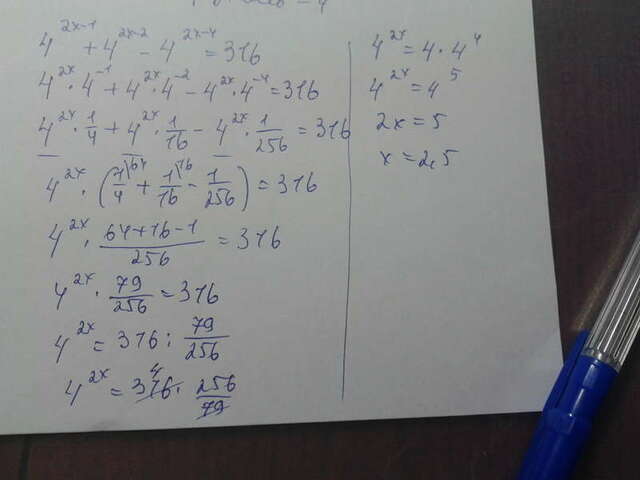 4^{2x-1} + 4^{2x-2} - 4^{2x-4} = 316
4^{2x} · 4^{-1} + 4^{2x} · 4^{-2} - 4^{2x} · 4^{-4} = 316
4^{2x} · 1/4 + 4^{2x} · 1/16 - 4^{2x} · 1/256 = 316
4^{2x} · (1/4 \64 + 1/16 \16 - 1/256) = 316
4^{2x} · (64+16-1)/256 = 316
4^{2x} · 79/256 = 316
4^{2x} = 316 : 79/256
4^{2x} = 316 4 · 256/79
4^{2x} = 4 · 4^4
4^{2x} = 4^5
2x = 5
x = 2,5